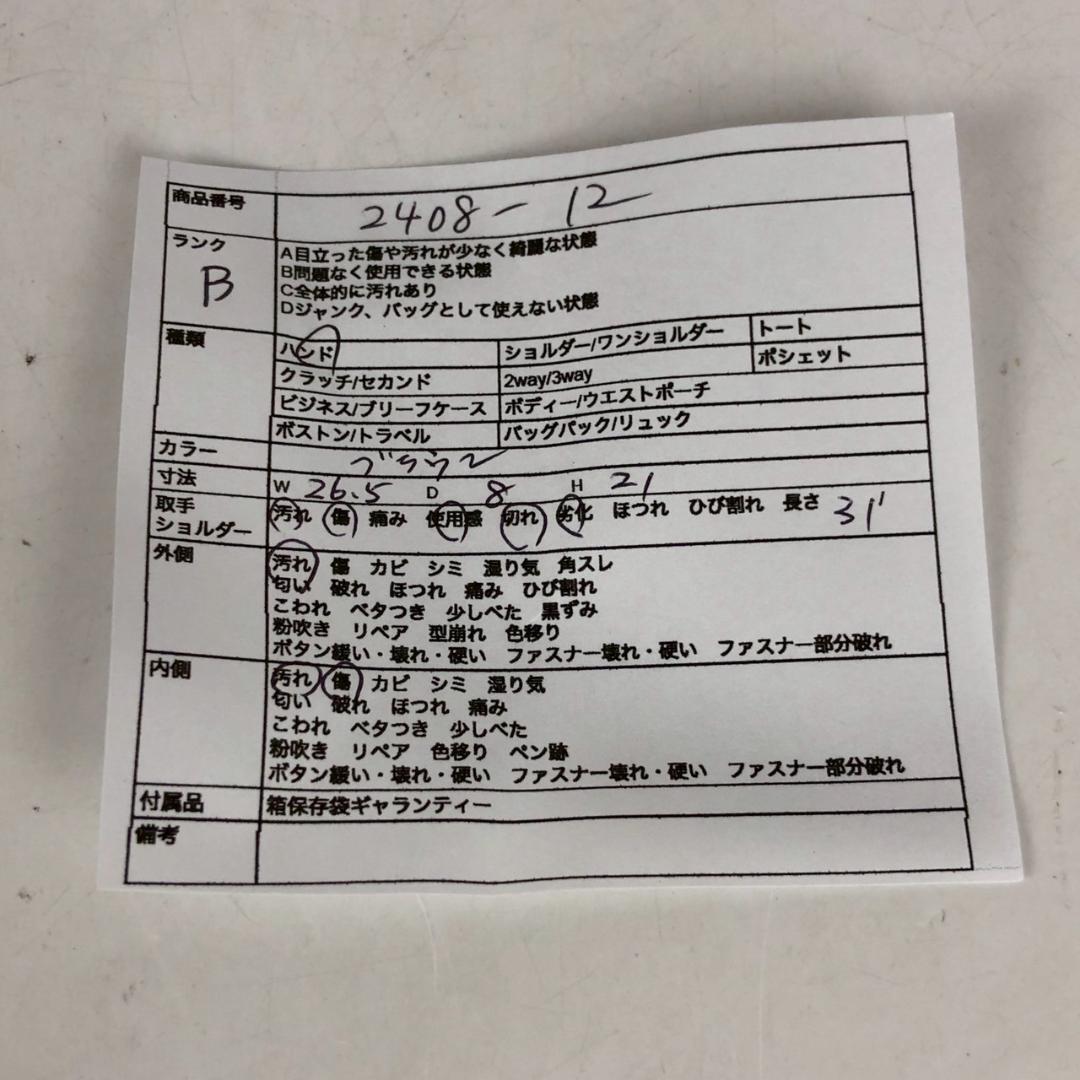 商品番号 2408-12
ランク B
A目立った傷や汚れが少なく綺麗な状態
B問題なく使用できる状態
C全体的に汚れあり
Dジャンク、バッグとして使えない状態
種類
ハンド ショルダー/ワンショルダー トート
クラッチ/セカンド 2way/3way ポシェット
ビジネス/ブリーフケース ボディー/ウエストポーチ
ボストン/トラベル バッグパック/リュック
カラー ブラウン
寸法 W 26.5 D 8 H 21
取手
ショルダー
汚れ 傷 痛み 使用感 切れ 劣化 ほつれ ひび割れ 長さ 31
外側
汚れ 傷 カビ シミ 湿り気 角スレ
匂い 破れ ほつれ 痛み ひび割れ
こわれ ベタつき 少しべた 黒ずみ
粉吹き リペア 型崩れ 色移り
ボタン緩い・壊れ・硬い ファスナー壊れ・硬い ファスナー部分破れ
内側
汚れ 傷 カビ シミ 湿り気
匂い 破れ ほつれ 痛み
こわれ ベタつき 少しべた
粉吹き リペア 色移り ペン跡
ボタン緩い・壊れ・硬い ファスナー壊れ・硬い ファスナー部分破れ
付属品 箱保存袋ギャランティー
備考